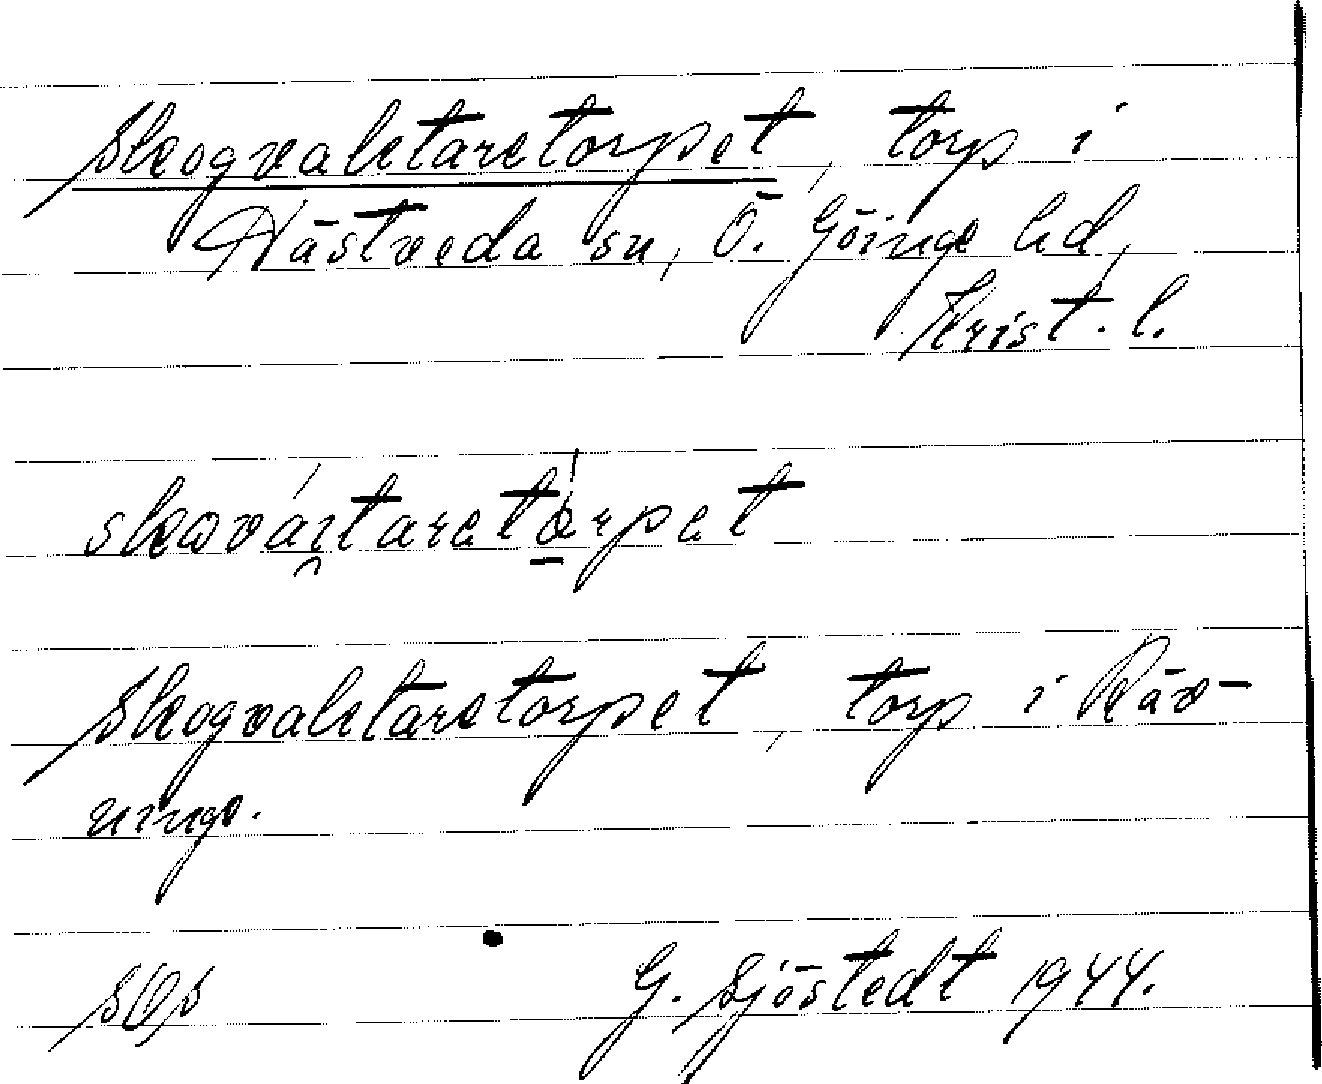 Skogvaktaretorpet, torp i
Hästveda sn, Ö. Göinge hd,
Krist. l.
Skogvaktaretorpet, torp i Räv-
ninge.
G. Sjöstedt 1944.